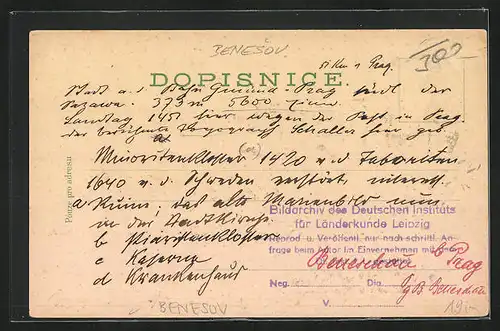 BENEŠOV
51 Km v Prag.
300
DOPISNICE.
Stadt a. d. Bahn Gmünd - Prag südl. der
Sazawa. 373 m 5600 Einw.
Landtag 1451 hier wegen der Pest in Prag.
der berühmte Topograph Schaller hier geb.
Minoritenkloster 1420 v. d. Taboriten
1640 v. d. Schweden zerstört,
a Ruine, das alte Marienbild nun
in der Stadtkirche
b Piaristenkloster
c Kaserne
d Krankenhaus
Pouze pro adresu
Bildarchiv des Deutschen Instituts
für Länderkunde Leipzig
Reprod. u. Veröffentl. nur nach schriftl. An-
frage beim Autor im Einvernehmen mit
Beneschau b Prag
Neg. Dia.
GB Beneschau
V.
BENESOV